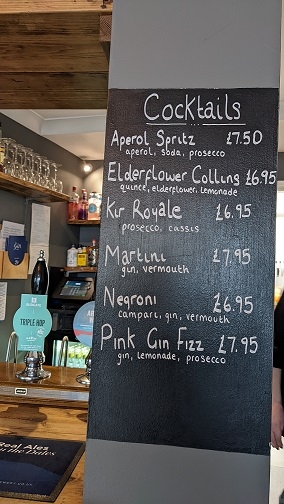 Cocktails
Aperol Spritz £7.50
aperol, soda, prosecco
Elderflower Collins £6.95
quince, elderflower, lemonade
Kir Royale £6.95
prosecco, cassis
Martini £7.95
gin, vermouth
Negroni £6.95
campari, gin, vermouth
Pink Gin Fizz £7.95
gin, lemonade, prosecco
TRIPLE HOP
Real Ales
in the Dales